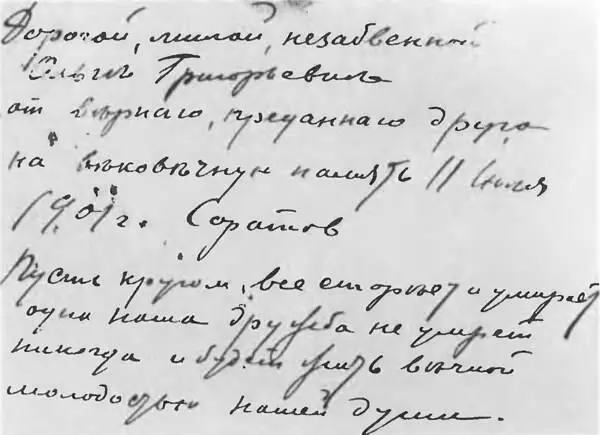 Дорогой, милой, незабвенной
Ольгѣ Григорьевнѣ
от вѣрнаго, преданнаго друга
на вѣковѣчную память 11 Июля
1901 г. Саратов
Пусть кругом, все стореет и умирает
одна наша дружба не умрет
никогда и будет жить вечной
молодостью нашей души.